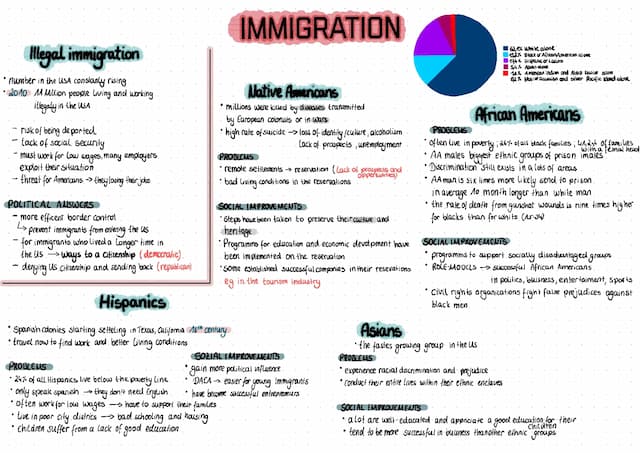 IMMIGRATION
Illegal immigration
• number in the USA constantly rising
• 2010: 11 Million people living and working
illegally in the USA
– risk of being deported
– lack of social security
– must work for low wages, many employers
exploit their situation
– threat for Americans → they losing their jobs
POLITICAL ANSWERS
– more efficient border control
↳ prevent immigrants from entering the US
– for immigrants who lived a longer time in
the US → ways to a citizenship (democratic)
– denying US citizenship and sending back (republican)
Native Americans
• millions were killed by diseases transmitted
by European colonists or in wars
• high rate of suicide → loss of identity/culture, alcoholism
lack of prospects, unemployment
PROBLEMS
• remote settlements → reservation (lack of prospects and
opportunities)
• bad living conditions in the reservations
SOCIAL IMPROVEMENTS
• Steps have been taken to preserve their culture and
heritage
• Programms for education and economic development have
been implemented on the reservation
• Some established successful companies in their reservations
eg in the tourism industry
White alone
Black or African American alone
Hispanic or Latino
Asian alone
American Indian and Alaska Native alone
Native Hawaiian and other Pacific Island alone
African Americans
PROBLEMS
• often live in poverty; of all black families; of families
with a female head
• AA males biggest ethnic groups of prison inmates
• Discrimination still exists in a lots of areas
• AA man is six times more likely send to prison
in average 10 month longer than white man
• the rate of death from gunshot wounds is nine times higher
for blacks than for white
SOCIAL IMPROVEMENTS
• programms to support socially disadvantaged groups
• ROLE-MODELS → successful African Americans
in politics, business, entertaiment, sports
• Civil rights organisations fight false prejudices against
black men
Hispanics
• Spanish colonies starting setteling in Texas, California century
• travel now to find work and better living conditions
PROBLEMS
• 24% of all Hispanics live below the poverty line
• only speak spanish → they don't need English
• often work for low wages → have to support their families
• live in poor city districts → bad schooling and housing
• children suffer from a lack of good education
SOCIAL IMPROVEMENTS
• gain more political influence
• DACA → easier for young immigrants
• have become succesful entrepreneurs
Asians
• the fastes growing group in the US
PROBLEMS
• experience racial discrimination and prejudice
• conduct their entire lives within their ethnic enclaves
SOCIAL IMPROVEMENTS
• a lot are well-educated and appreciate a good education for their
children
• tend to be more successful in business than other ethnic groups